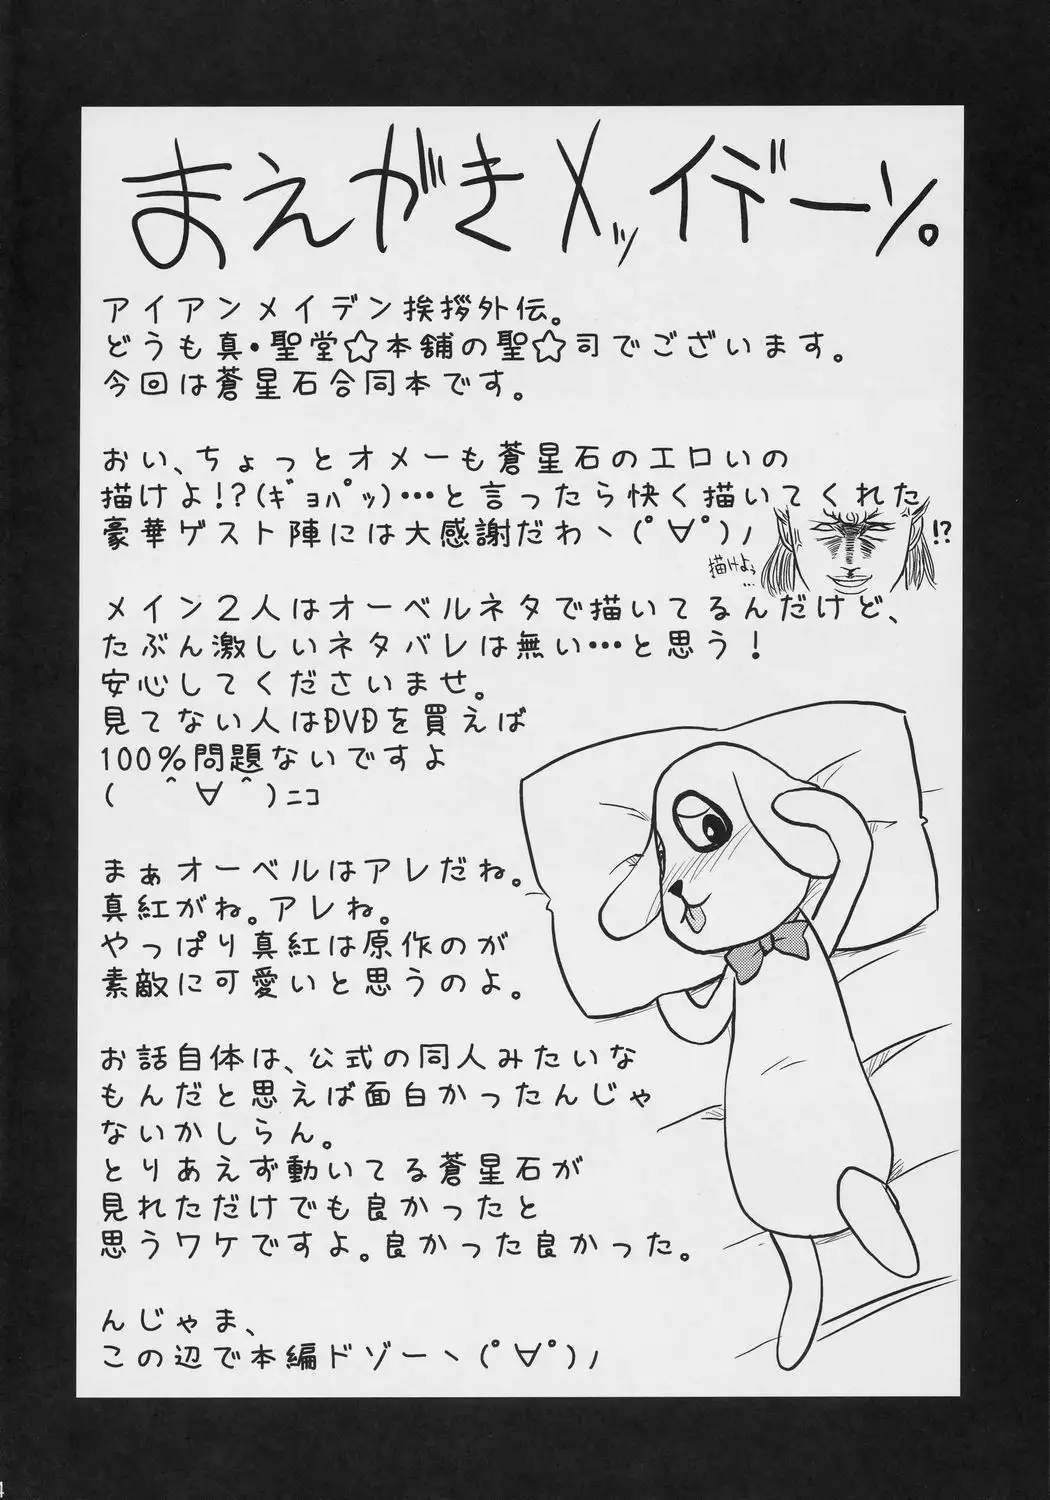 まえがきメッイデーン。
アイアンメイデン挨拶外伝。
どうも真・聖堂☆本舗の聖☆司でございます。
今回は蒼星石合同本です。
おい、ちょっとオメーも蒼星石のエロいの
描けよ!?(ｷﾞｮﾊﾟｯ)…と言ったら快く描いてくれた
豪華ゲスト陣には大感謝だわヽ(ﾟ∀ﾟ)ﾉ
!?
描けよぅ
…
メイン２人はオーベルネタで描いてるんだけど、
たぶん激しいネタバレは無い…と思う！
安心してくださいませ。
見てない人はDVDを買えば
100％問題ないですよ
( ＾∀＾)ﾆｺ
まぁオーベルはアレだね。
真紅がね。アレね。
やっぱり真紅は原作のが
素敵に可愛いと思うのよ。
お話自体は、公式の同人みたいな
もんだと思えば面白かったんじゃ
ないかしらん。
とりあえず動いてる蒼星石が
見れただけでも良かったと
思うワケですよ。良かった良かった。
んじゃま、
この辺で本編ドゾーヽ(ﾟ∀ﾟ)ﾉ
4